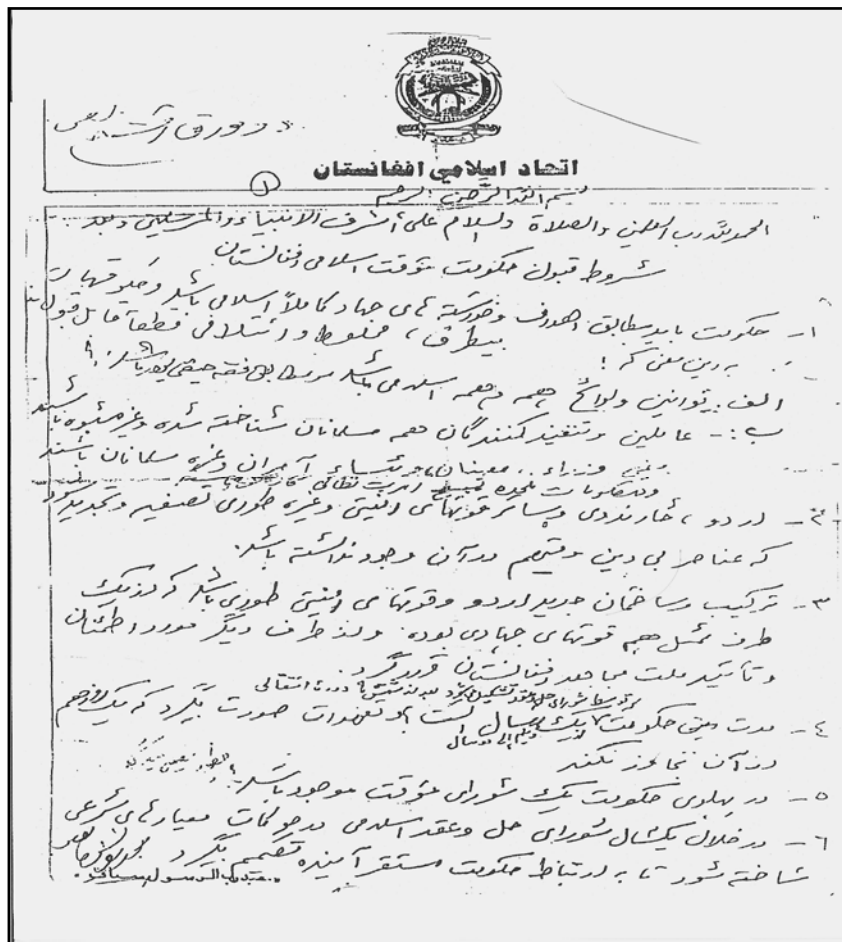 اتحاد اسلامي افغانستان
۱
بسم الله الرحمن الرحيم
الحمد لله رب العلمين والصلاة والسلام على اشرف الانبياء والمرسلين وبعد
شروط قبول حکومت مؤقت اسلامی افغانستان
۱- حکومت باید مطابق اهداف و خواسته های جهاد کاملاً اسلامی باشد و حکومتهای
بیطرف، مخلوط و ائتلافی قطعاً قابل قبول
بدین معنی که!
الف:- قوانین و لوائح همه و همه اسلامی باشد و مطابق فقه حنفی باشد.
ب:- عاملین و تنفیذ کنندگان همه مسلمانان شناخته شده و غیر مشبوه باشند
یعنی وزراء، معینان، رؤساء، آمران و غیره مسلمانان باشند
۲- اردو، څارندوی و سائر قوتهای امنیتی و غیره طوری تصفیه و تجدید شود
که عناصر بی دین و متهم در آن وجود نداشته باشد.
۳- ترکیب و ساختمان جدید اردو و قوتهای امنیتی طوری باشد که از یک
طرف ممثل همه قوتهای جهادی بوده و از طرف دیگر مورد اطمئنان
و تأئید ملت مجاهد افغانستان قرار گرد.
۴- مدت حکومت یک سال است با تعهدات صورت بگیرد که یک روز هم
از آن تجاوز نکند
۵- در پهلوی حکومت یک شورای مؤقت موجود باشد
۶- در خلال یکسال شورای حل و عقد اسلامی معیارهای شرعی
ساخته شود تا به ارتباط حکومت مستقر آینده تصمیم بگیرد
عبدالرسول سیاف